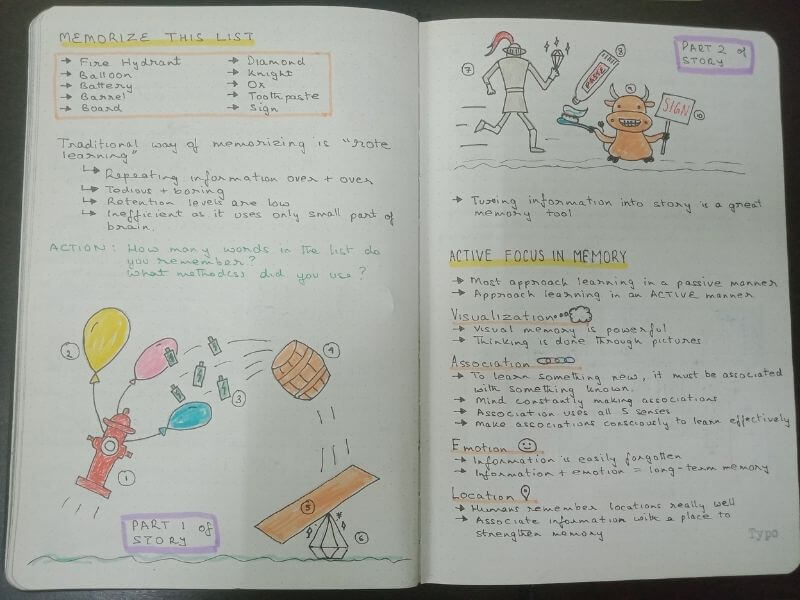 MEMORIZE THIS LIST
→ Fire Hydrant
→ Balloon
→ Battery
→ Barrel
→ Board
→ Diamond
→ Knight
→ Ox
→ Toothpaste
→ Sign
Traditional way of memorizing is "rote
learning"
↳ Repeating information over + over
↳ Tedious + boring
↳ Retention levels are low
↳ Inefficient as it uses only small part of
brain.
ACTION: How many words in the list do
you remember?
what methodess did you use?
2
3
4
1
5
6
PART 1 of
STORY
PART 2 of
STORY
7
8
PASTE
9
SIGN
10
→ Turing information into story is a great
memory tool
ACTIVE FOCUS IN MEMORY
→ Most approach learning in a passive manner
→ Approach learning in an ACTIVE manner
Visualization
→ Visual memory is powerful
→ Thinking is done through pictures
Association
→ To learn something new, it must be associated
with something known.
→ Mind constantly making associations
→ Association uses all 5 senses
→ Make associations consciously to learn effectively
Emotion
→ Information is easily forgotten
→ Information + emotion = long-term memory
Location
→ Humans remember locations really well
→ Associate information with a place to
strengthen memory
Typo